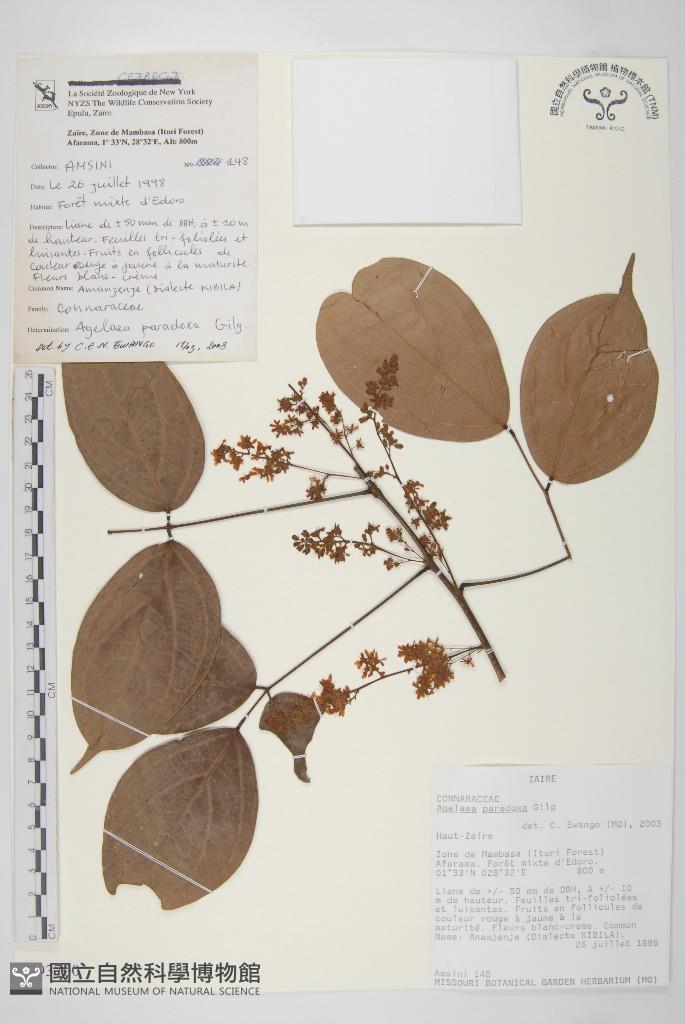 CEFRECOF
La Société Zoologique de New York
NYZS The Wildlife Conservation Society
Epulu, Zaïre
Zaïre, Zone de Mambasa (Ituri Forest)
Afarama, 1° 33'N, 28°32'E, Alt: 800m
Collector: AMSINI No. 148
Date: Le 26 juillet 1998
Habitat: Forêt mixte d'Edoro
Description: Liane de ± 50 mm de DBH, à ± 10 m
de hauteur. Feuilles tri-foliolées et
luisantes - Fruits en follicules de
couleur rouge à jaune à la maturité.
Fleurs blanc-crème.
Common Name: Amanjenje (Dialecte KIBILA)
Family: Connaraceae
Determination: Agelaea paradoxa Gilg.
Det. by C.E.N. EWANGO 2003
國立自然科學博物館 植物標本館 (TNM)
HERBARIUM, NATIONAL MUSEUM OF NATURAL SCIENCE
TAIWAN R.O.C.
CM 26 25 24 23 22 21 20 19 18 17 16 15 14 13 12 11 10 9 8 7 6 5 4 3 2 1 0 CM
ZAIRE
CONNARACEAE
Agelaea paradoxa Gilg
det. C. Ewango (MO), 2003
Haut-Zaire
Zone de Mambasa (Ituri Forest)
Afarama. Forêt mixte d'Edoro.
01°33'N 028°32'E 800 m
Liane de +/- 50 mm de DBH, à +/- 10
m de hauteur. Feuilles tri-foliolées
et luisantes. Fruits en follicules de
couleur rouge à jaune à la
maturité. Fleurs blanc-creme. Common
Name: Anamjenje (Dialecte KIBILA).
26 juillet 1998
Amsini 148
MISSOURI BOTANICAL GARDEN HERBARIUM (MO)
國立自然科學博物館
NATIONAL MUSEUM OF NATURAL SCIENCE